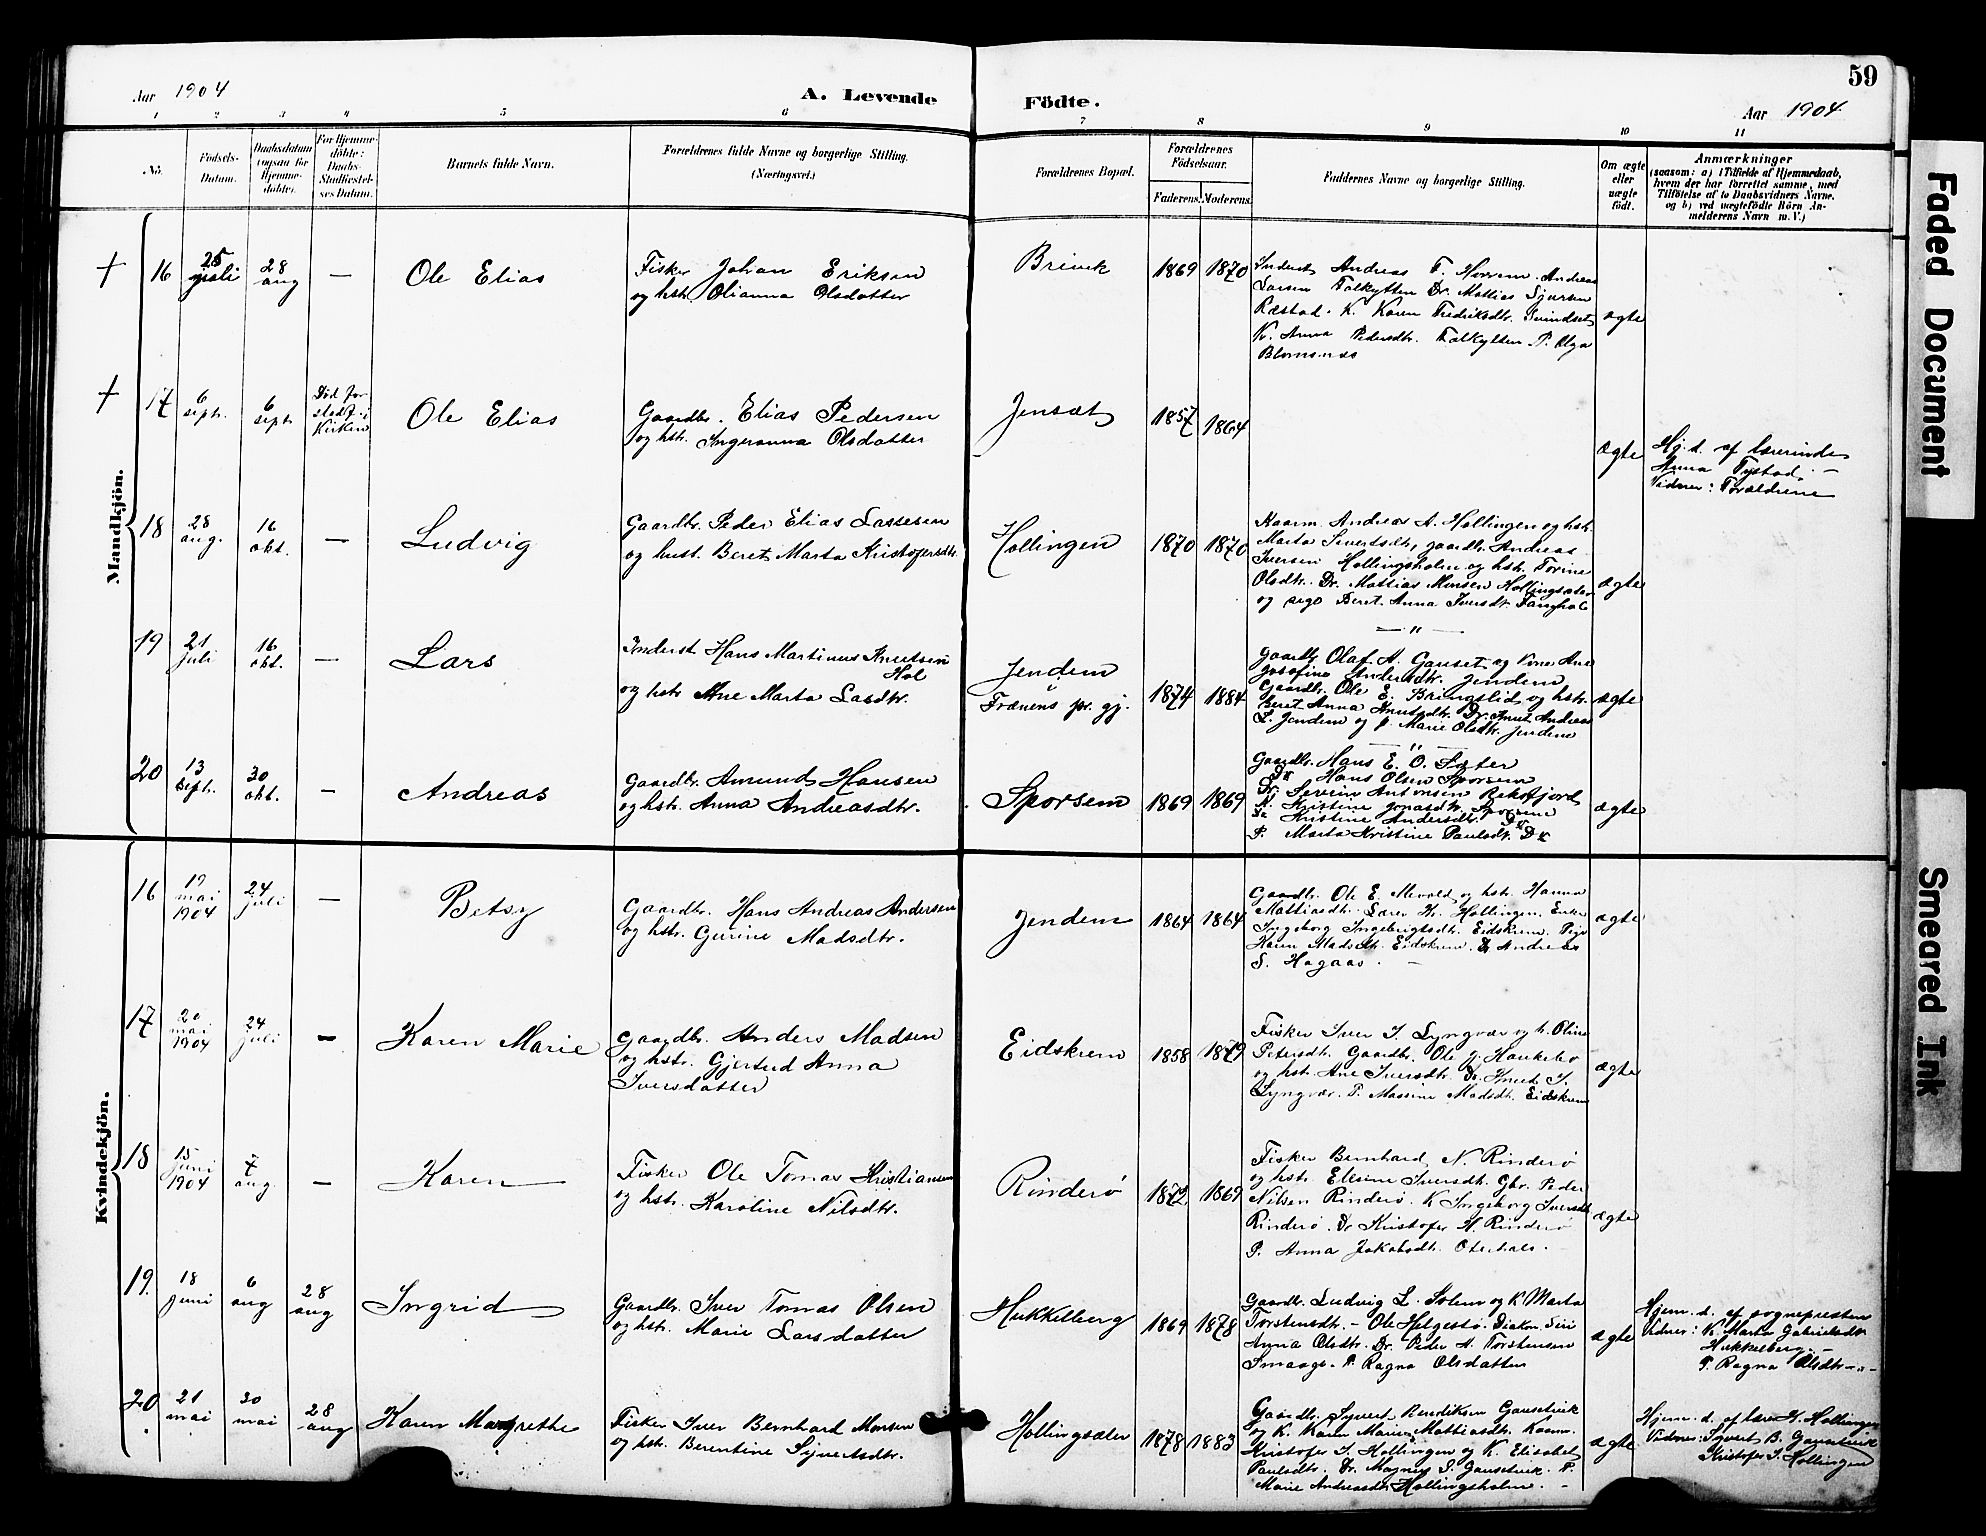 Aar 1904
A. Levende
Födte.
59
Aar 1904
1 2 3 4 5 6 7 8 9 10 11
No.
Födsels-
Datum.
Daabsdatum
(ogsaa for
Hjemme-
döbte).
For Hjemme-
döbte:
Daabs-
Stadfæstel-
ses Datum.
Barnets fulde Navn.
Forældrenes fulde Navne og borgerlige Stilling.
(Næringsvei.)
Forældrenes Bopæl.
Forældrenes
Födselsaar.
Faderens.
Moderens.
Faddernes Navne og borgerlige Stilling.
Om ægte
eller
uægte
födt.
Anmærkninger
(saasom: a) i Tilfælde af Hjemmedaab,
hvem der har forrettet samme, med
Tilföielse af to Daabsvidners Navne,
og b) ved uægtefödte Börn An-
melderens Navn m. V.)
Mandkjön.
+ 16
25
juli
28
aug
—
Ole Elias
Fisker Johan Eriksen
og hstr. Olianna Olsdatter
Brivik
1869
1870
Inderst Andreas T. Andreas
Larsen Talkytten Dr. Mattias Sjursen
Ræstad. K. Karen Fredriksdtr.
K. Anna Pedersdtr. Talkytten P. Olga
Blomsnes
ægte
+ 17
6
sept.
6
sept.
Død før
stadf. i
Kirken
Ole Elias
Gaardbr. Elias Pedersen
og hstr. Ingeranna Olsdatter
Jensæt
1857
1864
ægte
Hj. d. af lærerinde
Anna Tystad. —
Vidner: Forældrene
18
28
aug.
16
okt.
—
Ludvig
Gaardbr. Peder Elias Lassesen
og hust. Beret Marta Kristofersdtr.
Hollingen
1870
1870
Kaarm. Andreas A. Hollingen og hstr.
Marta Sivertsdtr, gaardbr. Andreas
Iversen Hollingsholm og hstr. Torine
Olsdtr. Dr. Mattias Monsen Hollingsæter
og pige Beret Anna Iversdtr.
ægte
19
21
juli
16
okt.
—
Lars
Inderst Hans Martinus Knutsen
Hol
og hstr Ane Marta Lasdtr.
Jendem
Frænens pr. gj.
1874
1884
— " —
Gaardbr. Olaf A. Gauset og Kone Ane
Josefine Andersdtr. Jendem
Gaardbr. Ole E. Bringslid og hstr.
Beret Anna Knutsdtr. Dr. Knut Andreas
L. Jendem og P. Marie Olsdtr. Jendem
ægte
20
13
sept.
30
okt.
—
Andreas
Gaardbr. Amund Hansen
og hstr. Anna Andreasdtr.
Sporsem
1869
1869
— " —
Gaardbr. Hans E. O. Sæter
Hans Olsen Sporsem
Dr. Severin Antonsen Rekfjord
K. Kristine Jonasdtr. Sporsem
Kristine Andersdtr.
P. Marta Kristine Paulsdtr. Do
ægte
Kvindekjön.
16
19
mai
1904
24
juli
—
Betsy
Gaardbr. Hans Andreas Andersen
og hstr. Gurine Madsdtr.
Jendem
1864
1864
Gaardbr. Ole E. Mevold og hstr. Hanna
Mattiasdtr. Lærer Kr. Hollingen. Enke
Ingeborg Ingebrigtsdtr. Eidskrem. Pige
Karen Madsdtr. Eidskrem. Dr Andreas
S. Hagaas. —
ægte
17
20
mai
1904
24
juli
—
Karen Marie
Gaardbr. Anders Madsen
og hstr. Gjertrud Anna
Iversdatter
Eidskrem
1858
1879
Fisker Iver I. Lyngvær og h. Oline
Petersdtr. Gaardbr. Ole J. Haukebø
og hstr. Ane Iversdtr. Dr. Knut I.
Lyngvær. P. Massine Madsdtr. Eidskrem
ægte
18
15
juni
1904
7
aug.
—
Karen
Fisker Ole Tomas Kristiansen
og hstr. Karoline Nilsdtr.
Rinderø
1872
1869
Fisker Bernhard N. Rinderø
og hstr. Elesine Iversdtr. Gbr. Peder
Nilsen Rinderø. K Ingeborg Iversdtr
Rinderø. Dr Kristofer H. Rinderø
P. Anna Jakobsdtr. Oterhals. —
ægte
19.
18
juni
6
aug
28
aug
Ingrid
Gaardbr. Iver Tomas Olsen
og hstr. Marie Larsdatter
Hukkelberg
1869
1878
Gaardbr. Ludvig L. Solem og K. Marta
Torstensdtr. — Ole Helgestø. Diakon.
Anna Olsdtr. Dr. Peder A. Torstensen
Smaage. P. Ragna Olsdatter
ægte
Hjem. d. af sognepresten
Vidner: K. Marta Gabrielsdtr
Hukkelberg. —
P. Ragna Olsdtr — " —
20
21
mai
30
mai
28
aug
Karen Margrethe
Fisker Iver Bernhard Monsen
og hstr. Berentine Syvertsdtr.
Hollingsæter
1878
1883
Gaardbr. Syvert Bendiksen Gausetvik
og K. Karen Marie Mattiasdtr. Kaarm.
Kristofer I. Hollingen og K. Elisabet
Paulsdtr. Dr. Magnus S. Gausetvik. P.
Marie Andreasdtr Hollingsholm. —
ægte
Hjem. d. af lærer K. Hollingen
Vidner: Syvert B. Gausetvik
Kristofer I. Hollingen
Faded Document
Smeared Ink